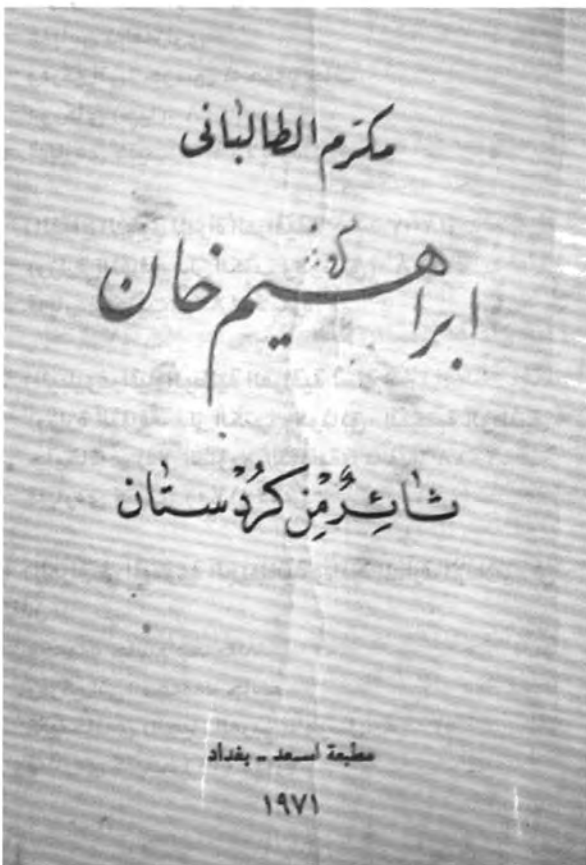 مكرم الطالبانى
ابراهيم خان
ثائرٌ من كُردستان
مطبعة اسعد - بغداد
١٩٧١